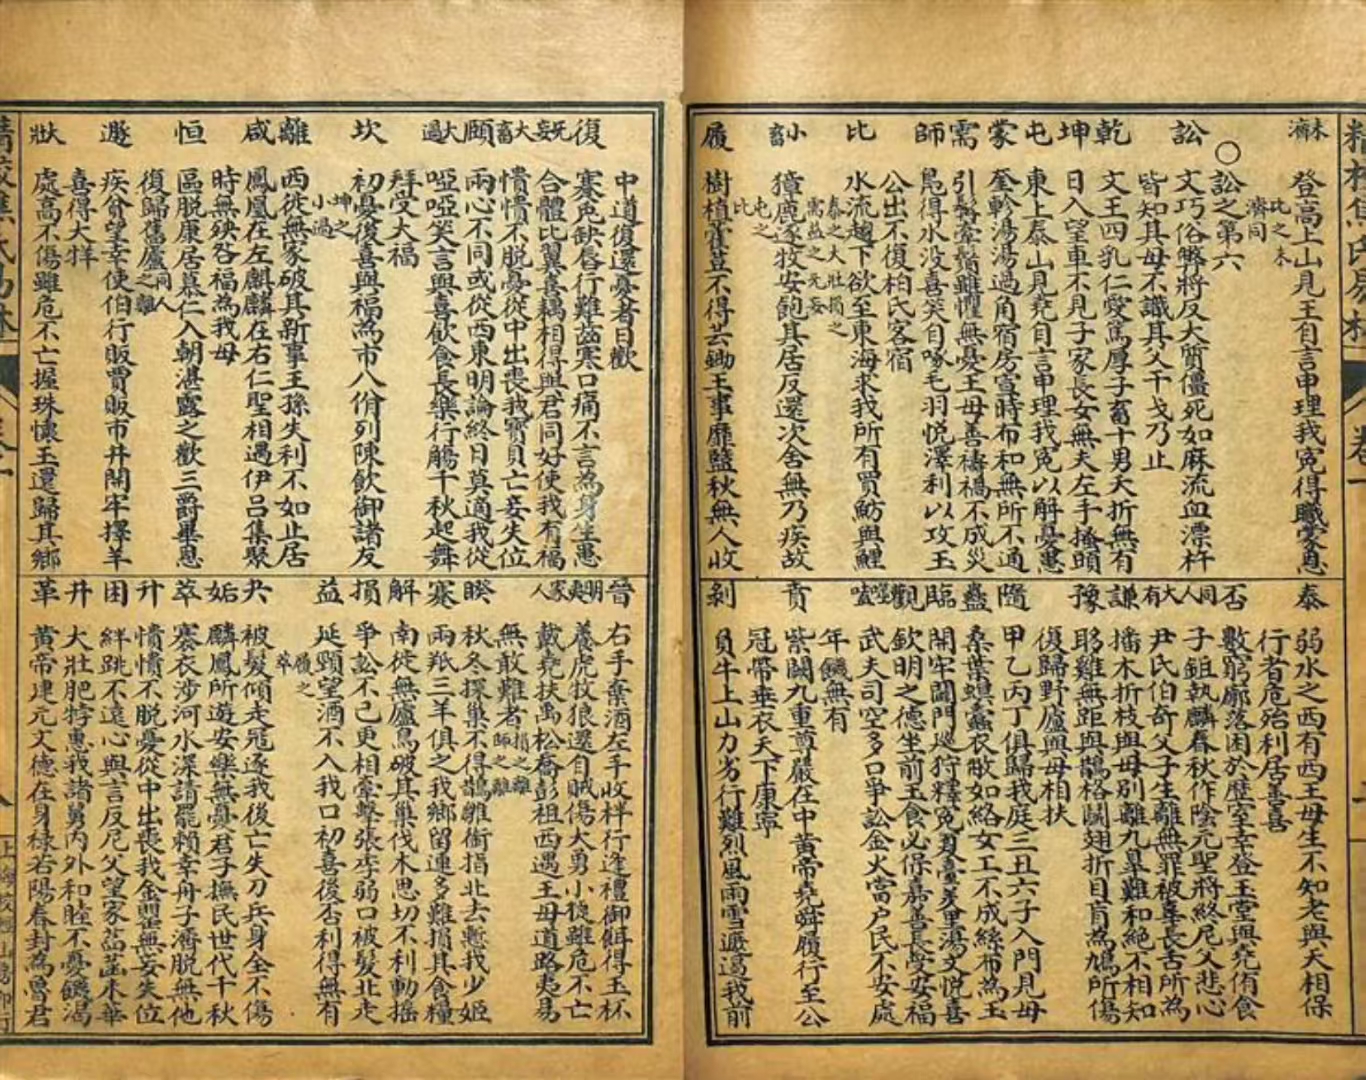 未濟 登高上山見王自言申理我冤得職蒙恩
比之未濟同
○
訟之第六
訟 文巧俗弊將反大質僵死如麻流血漂杵
皆知其母不識其父干戈乃止
乾 文王四乳仁愛篤厚子畜十男夭折無有
坤 日入望車不見子家長女無夫左手搔頭
屯 東上泰山見堯自言申理我冤以解憂患
蒙 奎軫湯湯過角宿房宣時布和無所不通
需 引髯牽鬚雖懼無憂王母善禱禍不成災
師 鳧得水没喜笑自啄毛羽悅澤利以攻玉
公出不復柏氏客宿
比 水流趨下欲至東海求我所有買魴與鯉
泰之大壯損之
需益之无妄
小畜 獐鹿逐牧安飽其居反還次舍無乃疾故
屯之
比
履 樹植藿荳不得芸鋤王事靡盬秋無人收
泰 弱水之西有西王母生不知老與天相保
行者危殆利居善喜
否 數窮廓落困於歷室幸登玉堂與堯侑食
同人 子鉏執麟春秋作陰元聖將終尼父悲心
大有 尹氏伯奇父子生離無罪被辜長舌所為
謙 播木折枝與母別離九皋難和絶不相知
豫 眵雞無距與鵲格鬭翅折目盲為鳩所傷
復歸野廬與母相扶
隨 甲乙丙丁俱歸我庭三丑六子入門見母
蠱 桑葉螟蠹衣敝如絡女工不成絲布為玉
臨 開牢闢門巡狩釋冤夏臺羑里湯文悅喜
觀 欽明之德坐前玉食必保嘉善長受安福
噬嗑 武夫司空多口爭訟金火當户民不安處
年饑無有
賁 紫闕九重尊嚴在中黃帝堯舜履行至公
冠帶垂衣天下康寧
剝 負牛上山力劣行難烈風雨雪遮遏我前
中道復還憂者日歡
復 蹇兔缺唇行難齒寒口痛不言為身生患
无妄 合體比翼喜耦相得與君同好使我有福
大畜 憒憒不脱憂從中出喪我寶貝亡妾失位
頤 兩心不同或從西東明論終日莫適我從
大過 啞啞笑言與喜飲食長樂行觴千秋起舞
拜受大福
坎 初憂後喜與福為市八佾列陳飲御諸友
坤之
小過
離 西徙無家破其新車王孫失利不如止居
咸 鳳凰在左麒麟在右仁聖相遇伊呂集聚
時無殃咎福為我母
恒 區脱康居慕仁入朝湛露之歡三爵畢恩
復歸舊廬 同人之離
遯 疾貧望幸使伯行販賈販市井開牢擇羊
喜得大牂
壯 處高不傷雖危不亡握珠懷玉還歸其鄉
晉 右手棄酒左手收柈行逢禮御餌得玉杯
明夷 養虎牧狼還自賊傷大勇小捷雖危不亡
家人 戴堯扶禹松喬彭祖西遇王母道路夷易
無敢難者 損之離
師之離
睽 秋冬探巢不得鵲雛銜指北去慙我少姬
蹇 兩羝三羊俱之我鄉留連多難損其食糧
解 南徙無廬鳥破其巢伐木思切不利動搖
損 爭訟不已更相牽擊張季弱口被髮北走
益 延頸望酒不入我口初喜後否利得無有
履之
萃
夬 被髮傾走冠逐我後亡失刀兵身全不傷
姤 麟鳳所遊安樂無憂君子撫民世代千秋
萃 褰衣涉河水深請罷賴幸舟子濟脱無他
升 憒憒不脱憂從中出喪我金罌無妄失位
困 絆跳不遠心與言反尼父望家菡萏未華
井 大壯肥牸惠我諸舅内外和睦不憂饑渴
革 黃帝建元文德在身禄若陽春封為魯君